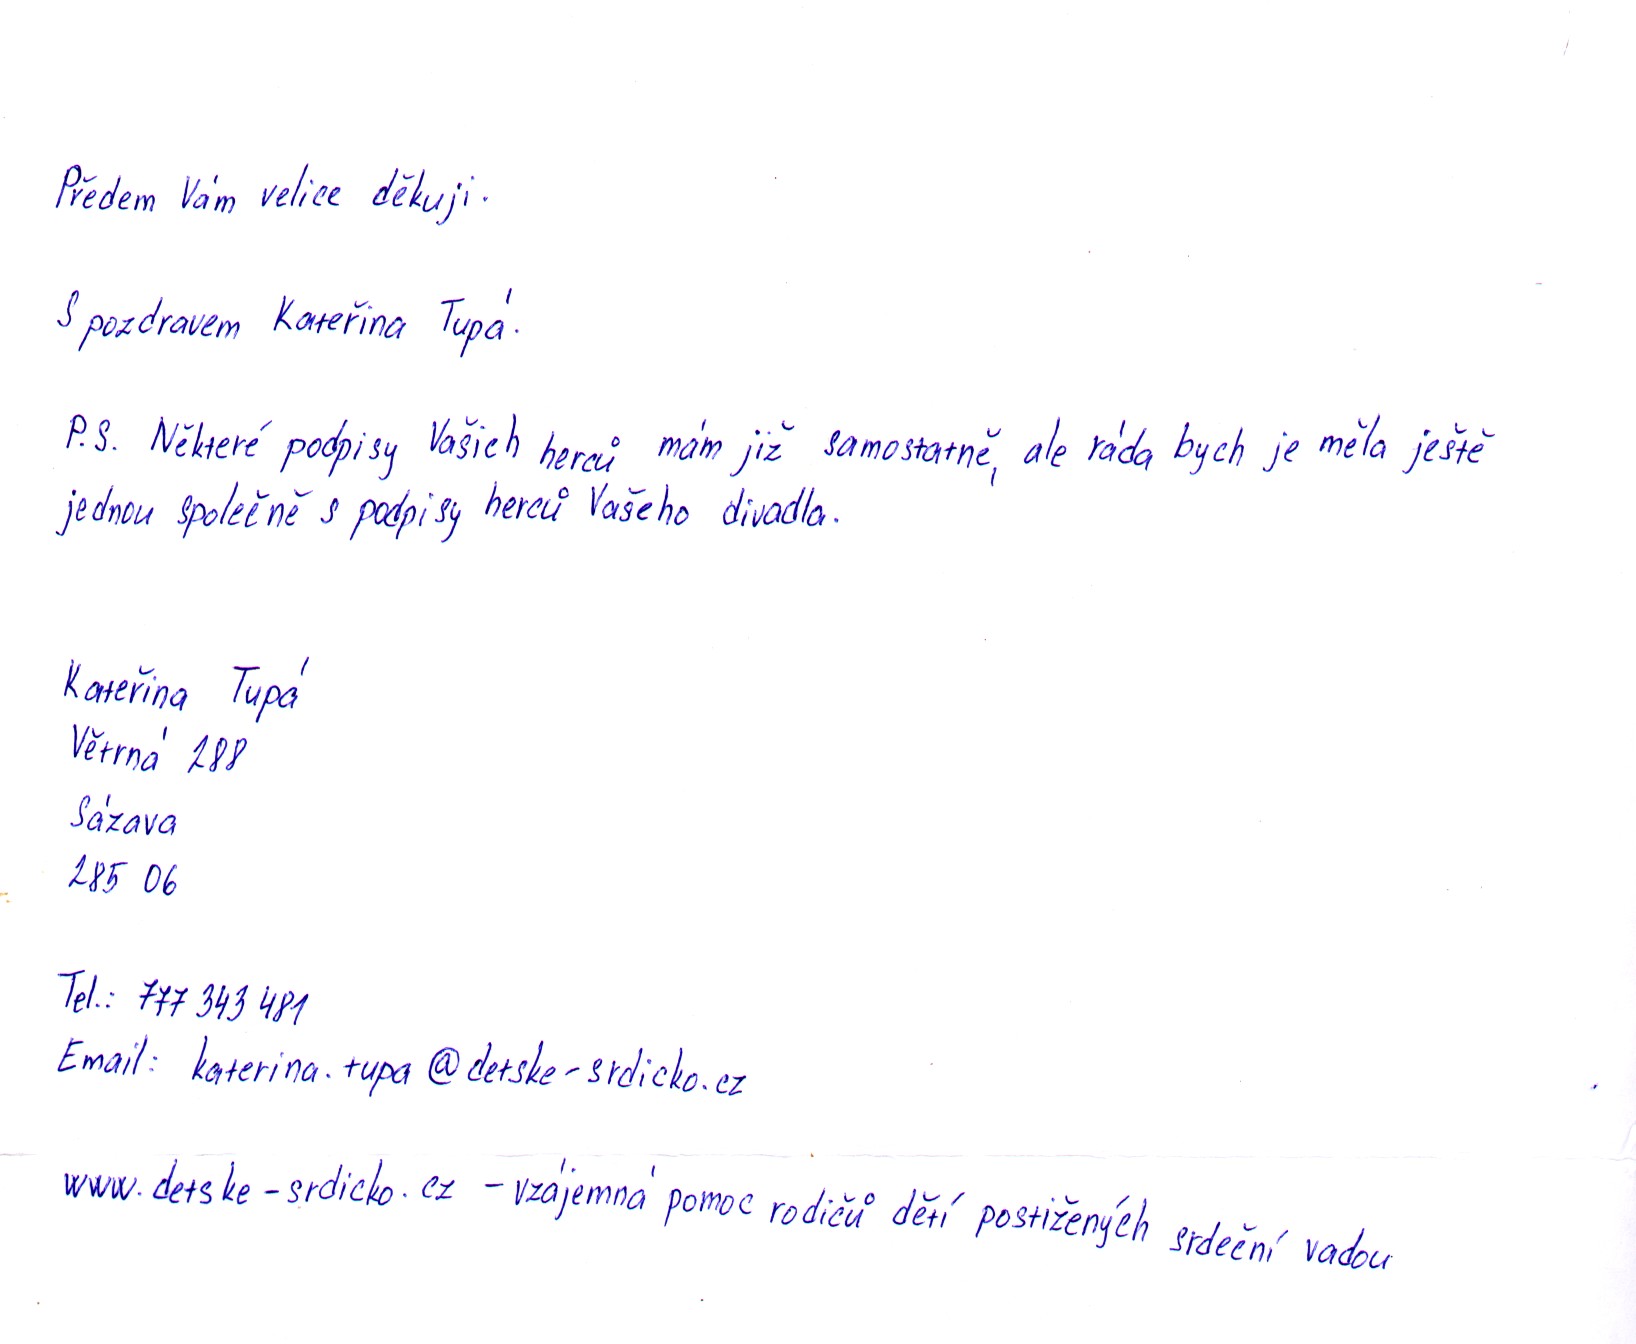 Předem Vám velice děkuji.
S pozdravem Kateřina Tupá.
P.S. Některé podpisy Vašich herců mám již samostatně, ale ráda bych je měla ještě
jednou společně s podpisy herců Vašeho divadla.
Kateřina Tupá
Větrná 288
Sázava
285 06
Tel.: 777 343 481
Email: katerina.tupa@detske-srdicko.cz
www.detske-srdicko.cz - vzájemná pomoc rodičů dětí postižených srdeční vadou